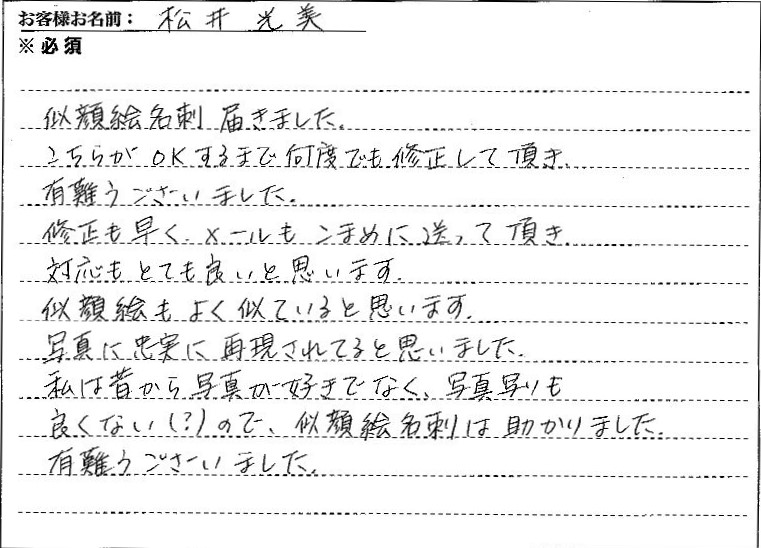 お客様お名前： 松井光美
※必須
似顔絵名刺届きました。
こちらがOKするまで何度でも修正して頂き、
有難うございました。
修正も早く、メールもこまめに送って頂き、
対応もとても良いと思います。
似顔絵もよく似ていると思います。
写真に忠実に再現されてると思いました。
私は昔から写真が好きでなく、写真写りも
良くない(？)ので、似顔絵名刺は助かりました。
有難うございました。